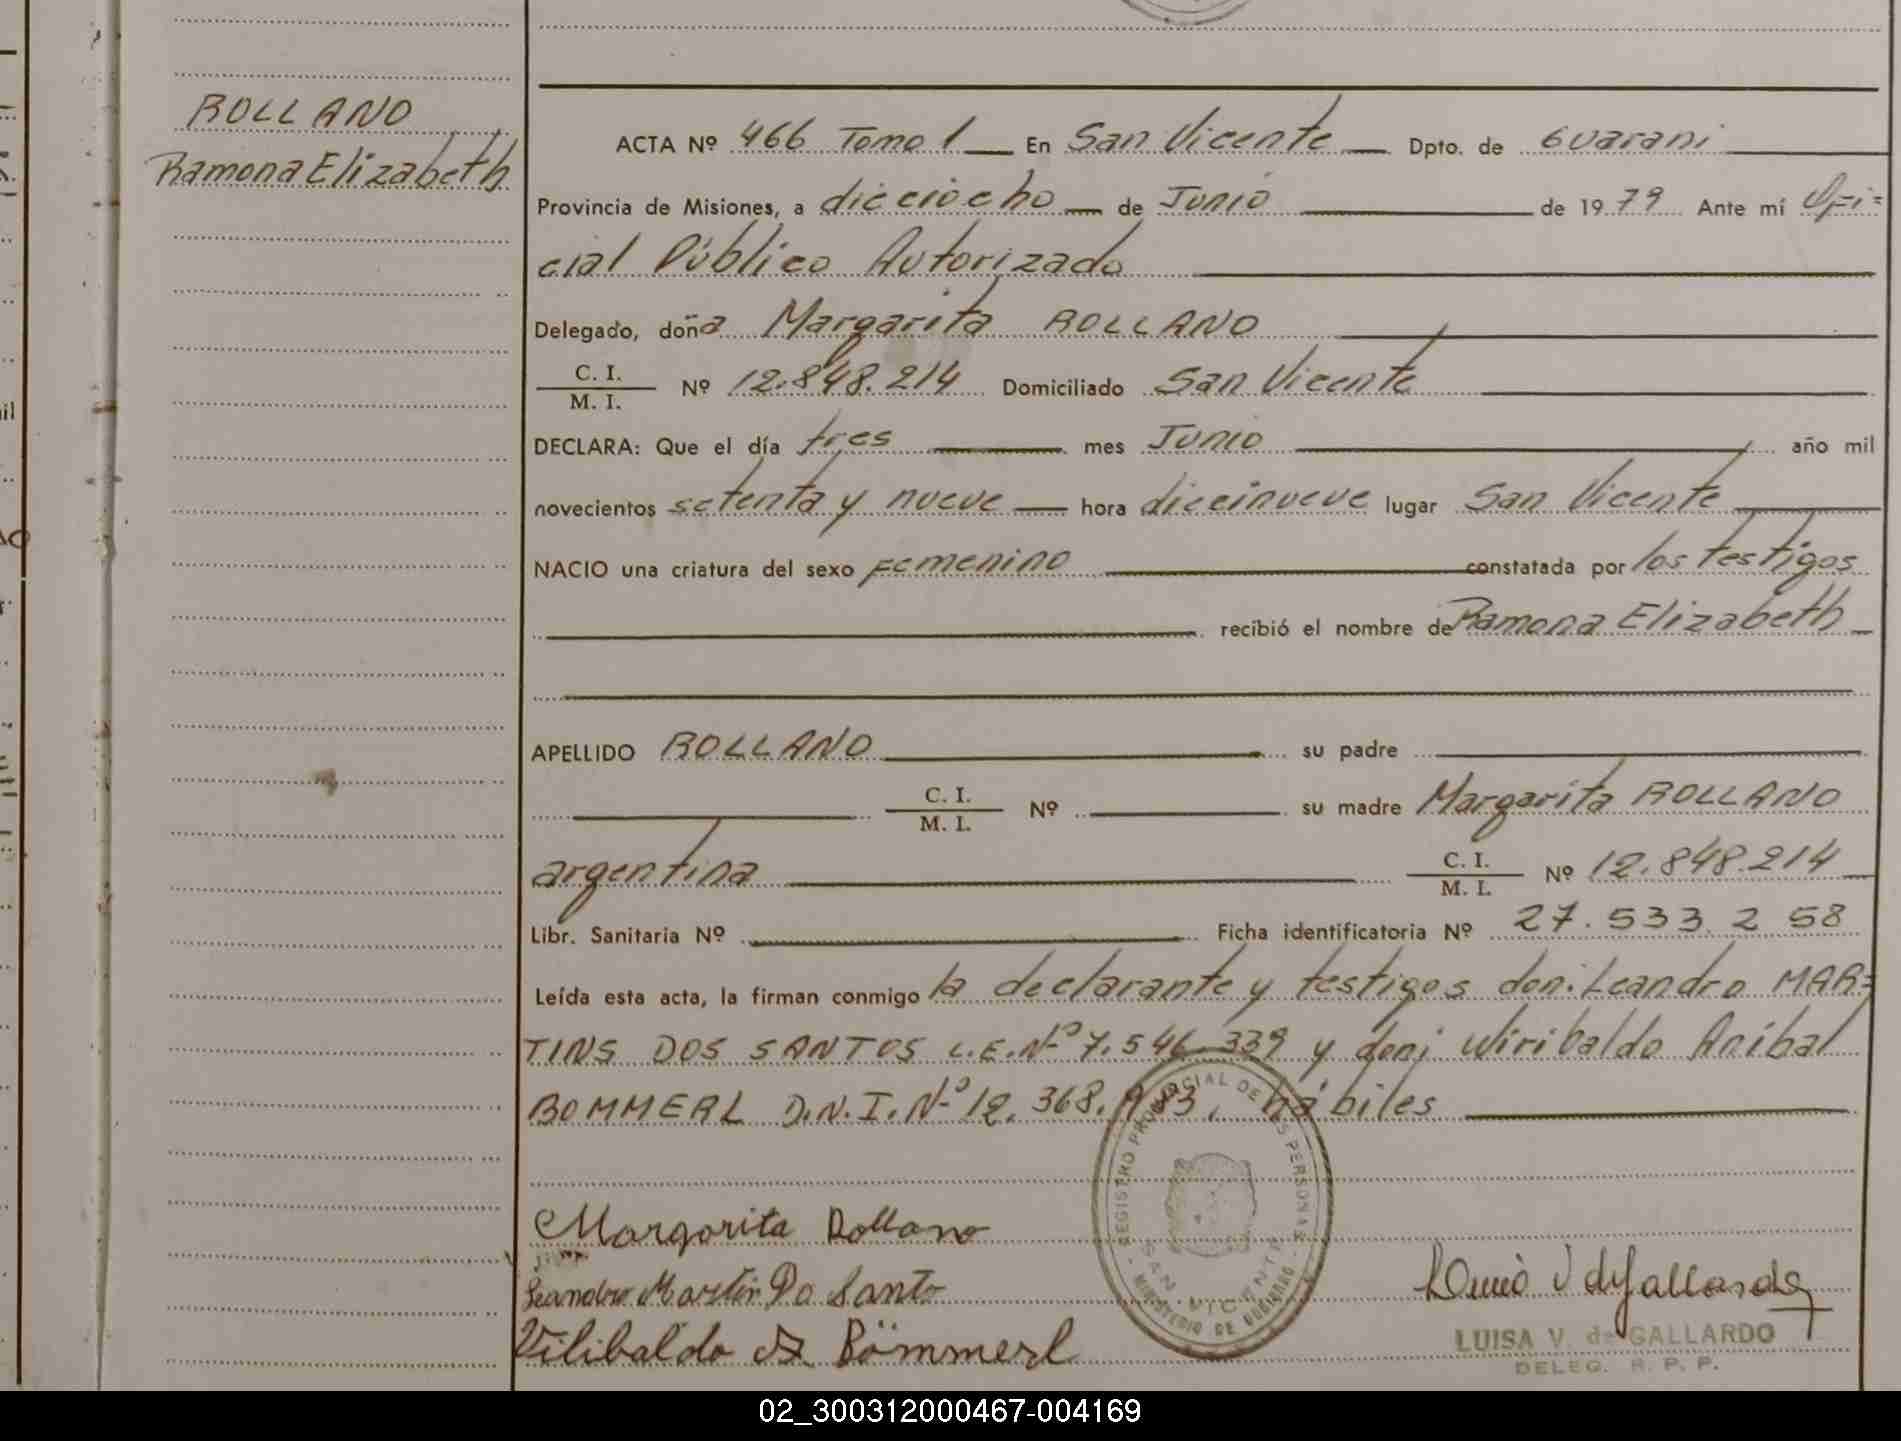 ROLLANO
Ramona Elizabeth
ACTA Nº 466 Tomo 1 En San Vicente Dpto. de Guarani
Provincia de Misiones, a dieciocho de Junio de 1979 Ante mí Ofi=
cial Público Autorizado
Delegado, doña Margarita ROLLANO
C. I.
M. I. Nº 12.848.214 Domiciliado San Vicente
DECLARA: Que el día tres mes Junio año mil
novecientos setenta y nueve hora diecinueve lugar San Vicente
NACIO una criatura del sexo Femenino constatada por los testigos
recibió el nombre de Ramona Elizabeth
APELLIDO ROLLANO su padre
C. I.
M. I. Nº su madre Margarita ROLLANO
argentina C. I.
M. I. Nº 12.848.214
Libr. Sanitaria Nº Ficha identificatoria Nº 27.533.258
Leída esta acta, la firman conmigo la declarante y testigos don: Leandro MAR=
TINS DOS SANTOS L.E. Nº 7.546.339 y don; Wiribaldo Aníbal
BOMMERL D.N.I. Nº 12.368.983, hábiles
REGISTRO PROVINCIAL DE LAS PERSONAS
SAN VICENTE
MINISTERIO DE GOBIERNO
Margarita Rollano
Leandro Martin Do Santo
Vilibaldo A Bömmerl
LUISA V. de GALLARDO
DELEG. R. P. P.
02_300312000467-004169